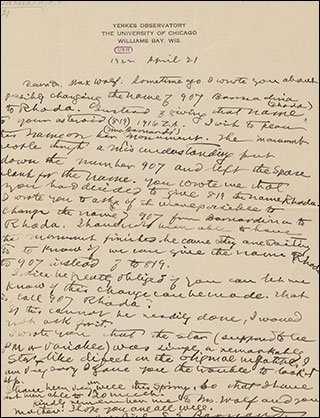 YERKES OBSERVATORY
THE UNIVERSITY OF CHICAGO
WILLIAMS BAY, WIS.
1922 April 21
Dear Dr. Max Wolf. Sometime ago I wrote you about
possibly changing the name of 907
(Rhoda)
to Rhoda. Instead of giving that name
to your asteroid (819) 1916 I wish to
(Mrs Barnard's)
her name on her monument. The monument
people through a misunderstanding put
down the number 907 and left the space
blank for the name. You wrote me that
you had decided to give 819 the name Rhoda.
I wrote you to ask if it were possible to
change the name of 907 from
to Rhoda. I have been unable to have
the monument finished because they are waiting
to know if we can give the name Rhoda
to 907 instead of to 819.
I will be greatly obliged if you can let me
know if this change can be made. That
is call 907 Rhoda.
If this cannot be readily done, I would
not ask for it.
I wrote you that the star (supposed to be
or Variable) was simply a remarkable
starlike defect in the original negative. I
am very sorry I gave you the trouble to look
it up.
I have been ill this Spring, so that I have
not been able to do much.
kindly remember me to Mrs Wolf and your
mother. I hope you are all well.